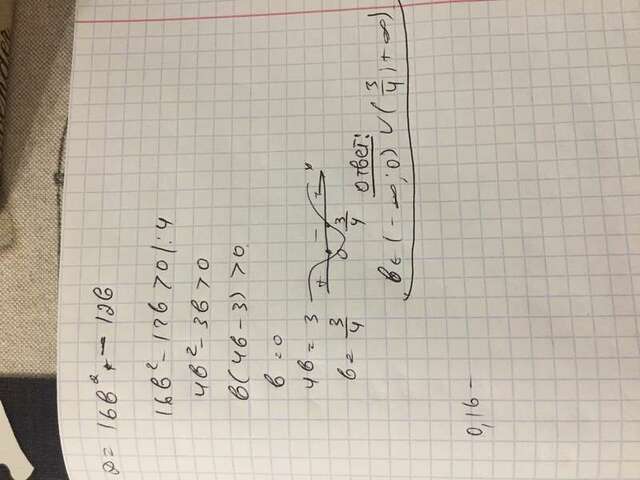 ender
D = 16b² - 12b
16b² - 12b > 0 |: 4
4b² - 3b > 0
b(4b - 3) > 0
b = 0
4b = 3
b = 3/4
+ - + x
0 3/4
ответ:
b ∈ (-∞; 0) ∪ (3/4; +∞)
0,16 -